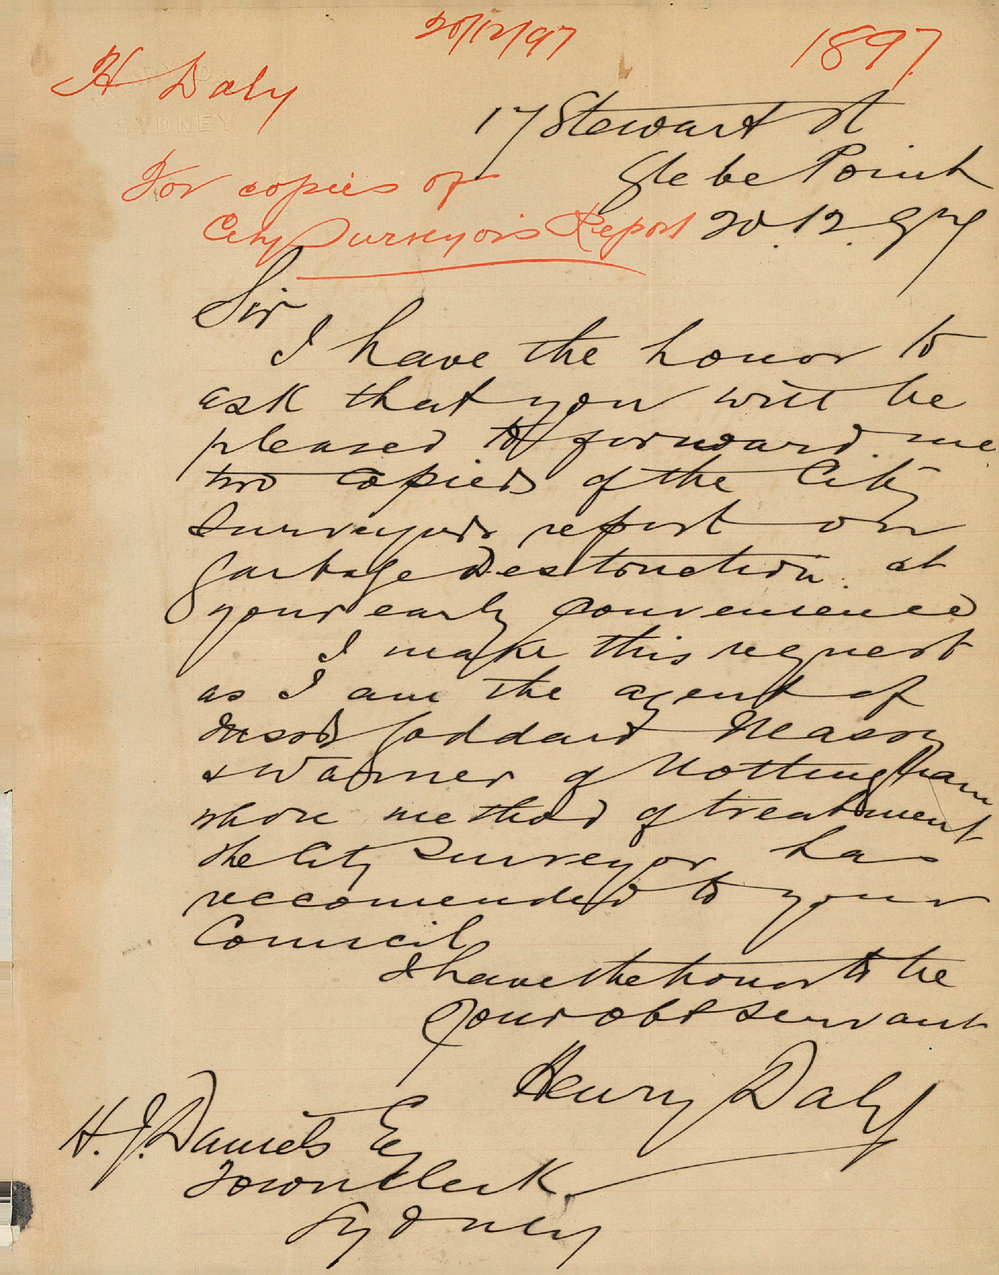 20/12/97
1897.
H Daly
SYDNEY
17 Stewart St
Glebe Point
For copies of
City Surveyors Report
20.12.97
Sir
I have the honor to
ask that you will be
pleased to forward me
two copies of the City
Surveyors report on
Garbage Destruction. at
your early convenience
I make this request
as I am the agent of
Goddard Mason
& Warner of Nottingham
whose method of treatment
the City Surveyor has
reccomended to your
Council
I have the honor to be
Your obt servant
Henry Daly
H. J. Daniels Esq
Town Clerk
Sydney